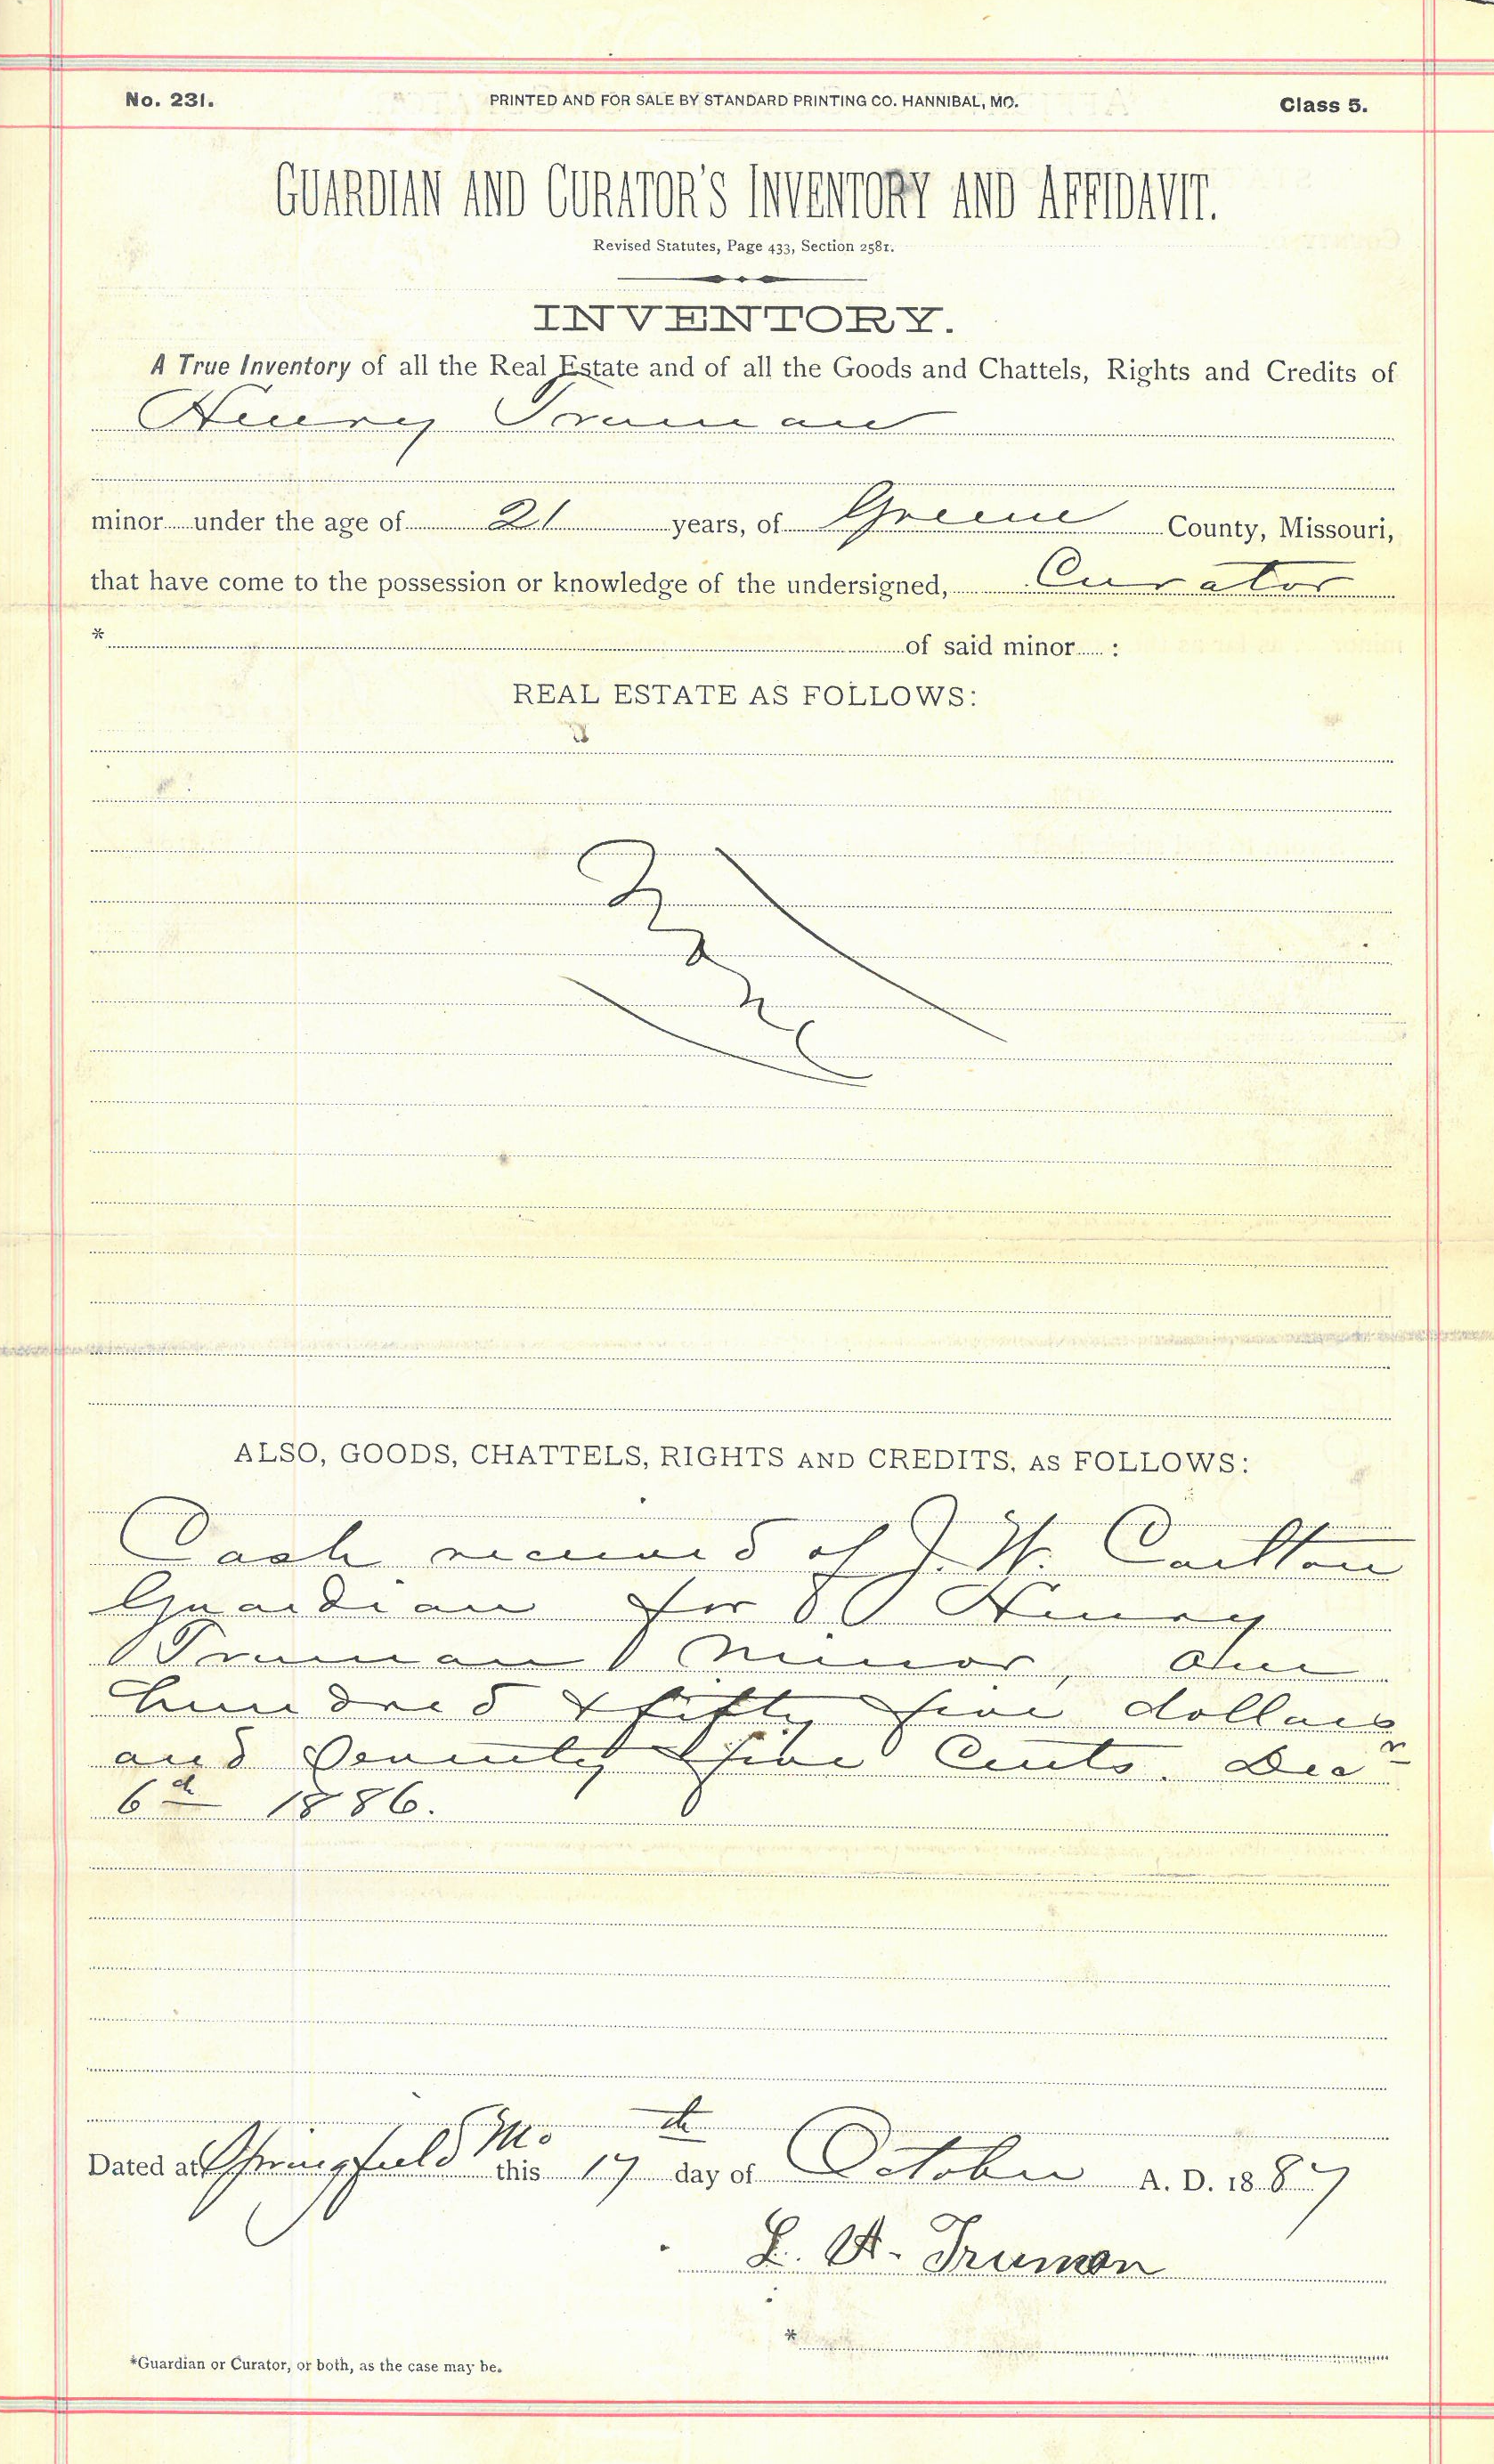 No. 231. PRINTED AND FOR SALE BY STANDARD PRINTING CO. HANNIBAL, MO. Class 5.
GUARDIAN AND CURATOR'S INVENTORY AND AFFIDAVIT.
Revised Statutes, Page 433, Section 2581.
INVENTORY.
A True Inventory of all the Real Estate and of all the Goods and Chattels, Rights and Credits of
Henry Truman
minor under the age of 21 years, of Greene County, Missouri,
that have come to the possession or knowledge of the undersigned, Curator
* of said minor :
REAL ESTATE AS FOLLOWS:
None
ALSO, GOODS, CHATTELS, RIGHTS AND CREDITS, AS FOLLOWS:
Cash received of J. W. Carlton
Guardian for Henry
Truman minor, One
hundred & fifty five dollars
and Seventy five Cents. Decr
6th 1886.
Dated at Springfield Mo this 17th day of October A. D. 1887
L. A. Truman
*
*Guardian or Curator, or both, as the case may be.